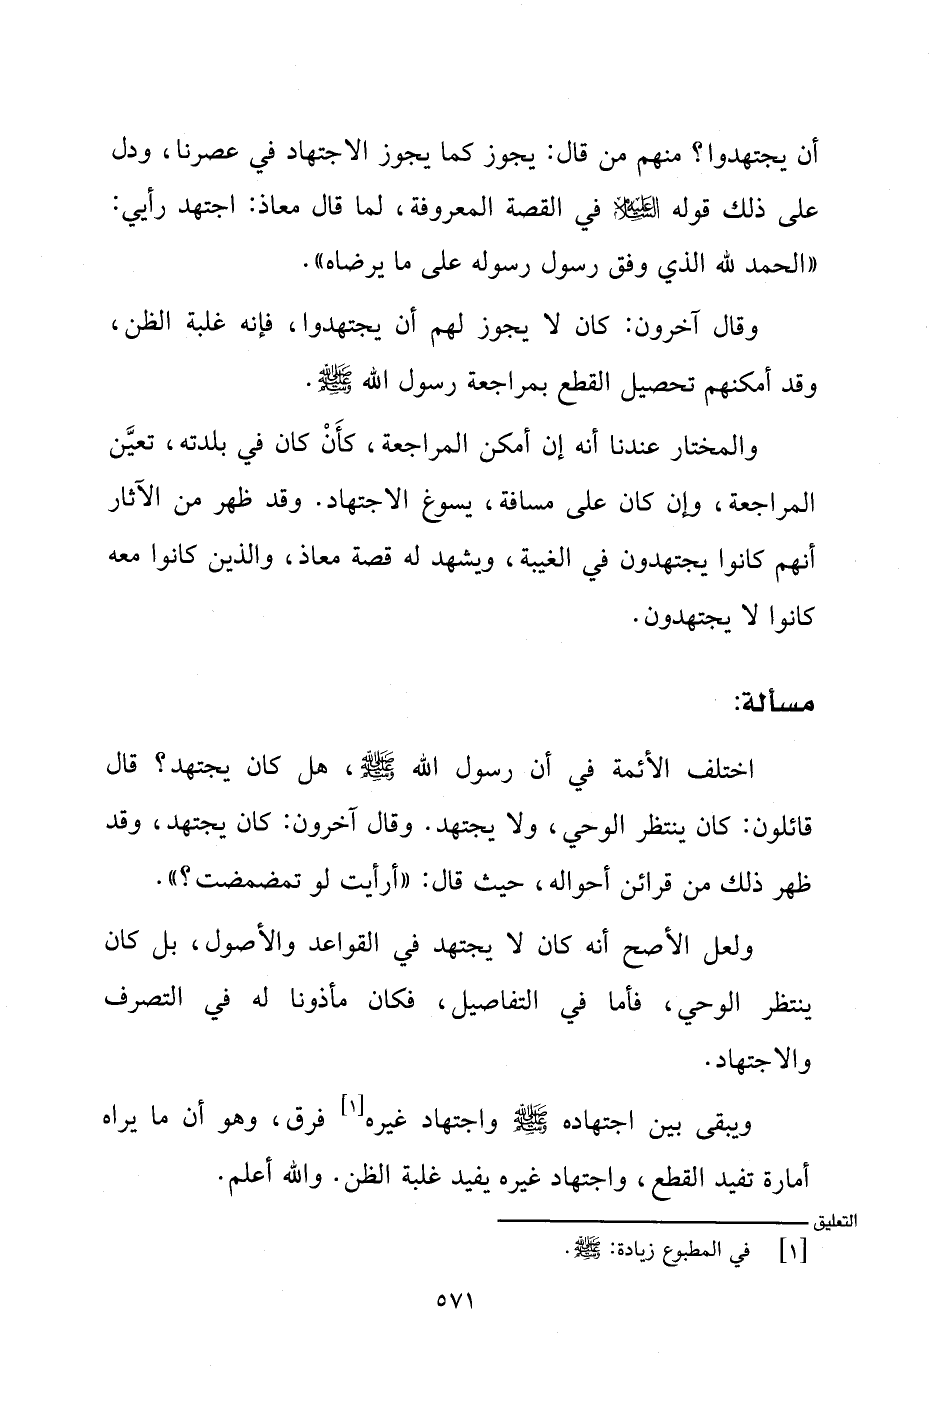 أن يجتهدوا؟ منهم من قال: يجوز كما يجوز الاجتهاد في عصرنا، ودل
على ذلك قوله عليه السلام في القصة المعروفة، لما قال معاذ: اجتهد رأيي:
«الحمد لله الذي وفق رسول رسوله على ما يرضاه».
وقال آخرون: كان لا يجوز لهم أن يجتهدوا، فإنه غلبة الظن،
وقد أمكنهم تحصيل القطع بمراجعة رسول الله ﷺ.
والمختار عندنا أنه إن أمكن المراجعة، كأَنْ كان في بلدته، تعيَّن
المراجعة، وإن كان على مسافة، يسوغ الاجتهاد. وقد ظهر من الآثار
أنهم كانوا يجتهدون في الغيبة، ويشهد له قصة معاذ، والذين كانوا معه
كانوا لا يجتهدون.
مسألة:
اختلف الأئمة في أن رسول الله ﷺ، هل كان يجتهد؟ قال
قائلون: كان ينتظر الوحي، ولا يجتهد. وقال آخرون: كان يجتهد، وقد
ظهر ذلك من قرائن أحواله، حيث قال: «أرأيت لو تمضمضت؟».
ولعل الأصح أنه كان لا يجتهد في القواعد والأصول، بل كان
ينتظر الوحي، فأما في التفاصيل، فكان مأذونا له في التصرف
والاجتهاد.
ويبقى بين اجتهاده ﷺ واجتهاد غيره[١] فرق، وهو أن ما يراه
أمارة تفيد القطع، واجتهاد غيره يفيد غلبة الظن. والله أعلم.
التعليق
[١] في المطبوع زيادة: ﷺ.
٥٧١